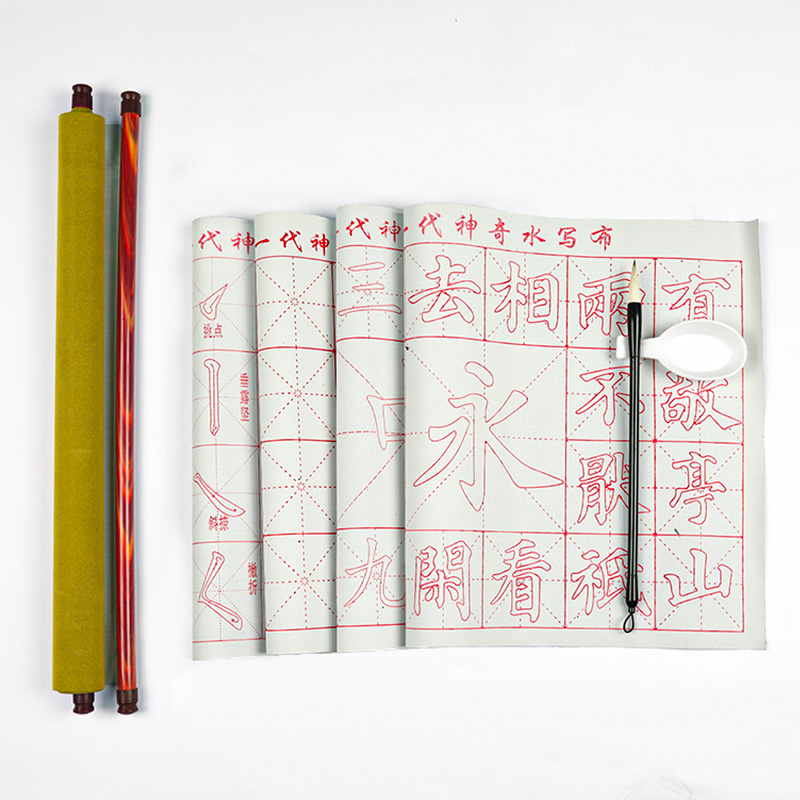 代神
挑点
垂露竖
斜捺
撇折
一代神
一代神
三
口
九
一代神奇水写布
去相兩有
永
不敬
厭亭
閑看祗山